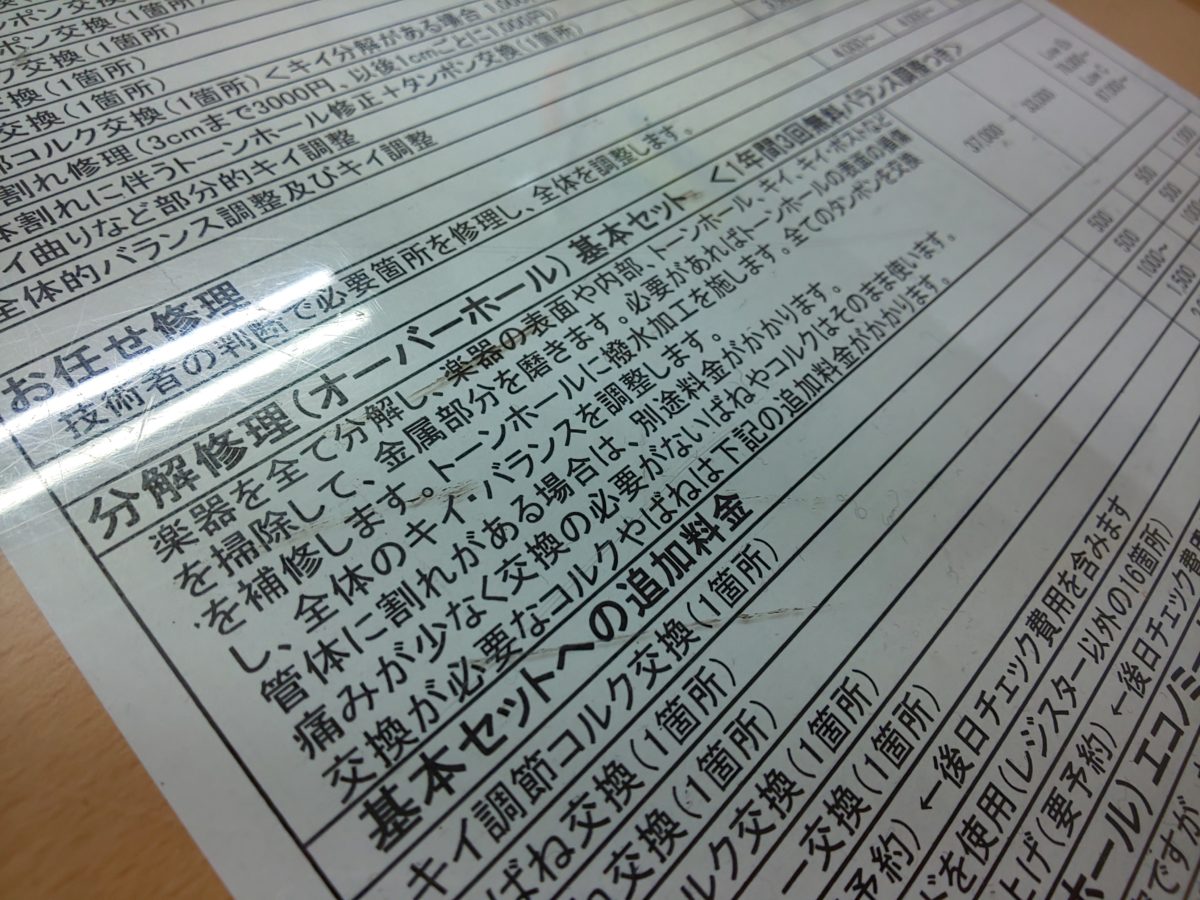 ンポン交換(1箇所)
ク交換(1箇所)
換(1箇所)
交換(1箇所)
部コルク交換(1箇所)<キイ分解がある場合 1,000
割れ修理(3cmまで3000円、以後1cmごとに1,000円)
体割れに伴うトーンホール修正+タンポン交換(1箇所)
イ曲りなど部分的キイ調整
全体的バランス調整及びキイ調整
4,000~
お任せ修理
技術者の判断で必要箇所を修理し、全体を調整します。
分解修理(オーバーホール)基本セット <1年間3回無料バランス調整つき>
楽器を全て分解し、楽器の表面や内部、トーンホール、キイ、キイ・ポストなど
を掃除して、金属部分を磨きます。必要があればトーンホールの表面の損傷
を補修します。トーンホールに撥水加工を施します。全てのタンポンを交換
し、全体のキイ・バランスを調整します。
管体に割れがある場合は、別途料金がかかります。
痛みが少なく交換の必要がないばねやコルクはそのまま使います。
交換が必要なコルクやばねは下記の追加料金がかかります。
37,000
33,000
基本セットへの追加料金
キイ調節コルク交換(1箇所)
500
500
1,000
ばね交換(1箇所)
500
500
交換(1箇所)
1000~
ルク交換(1箇所)
1,500
ー交換(1箇所)
予約)←後日チェック費用を含みます
ドを使用(レジスター以外の16箇所)
上げ(要予約)←後日チェック費用
ホール)エコノミ